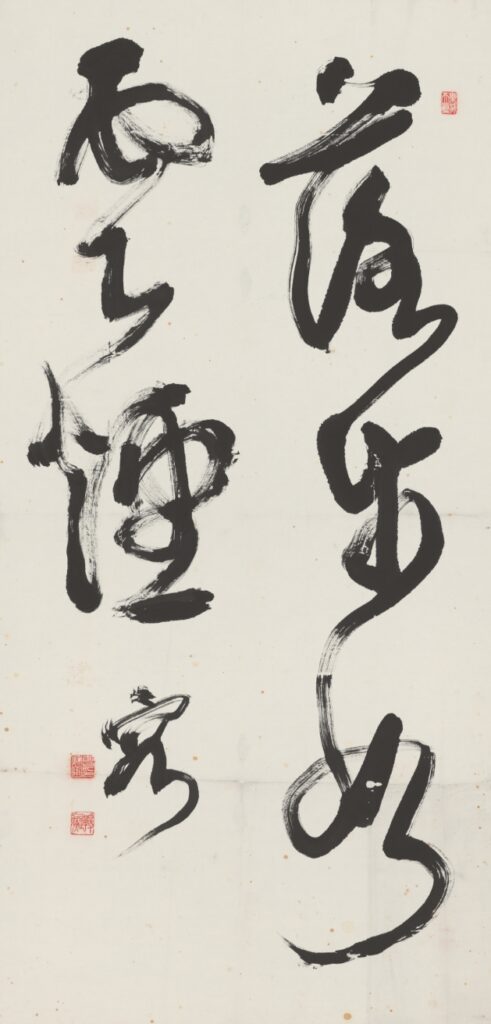 落紙如
雲煙